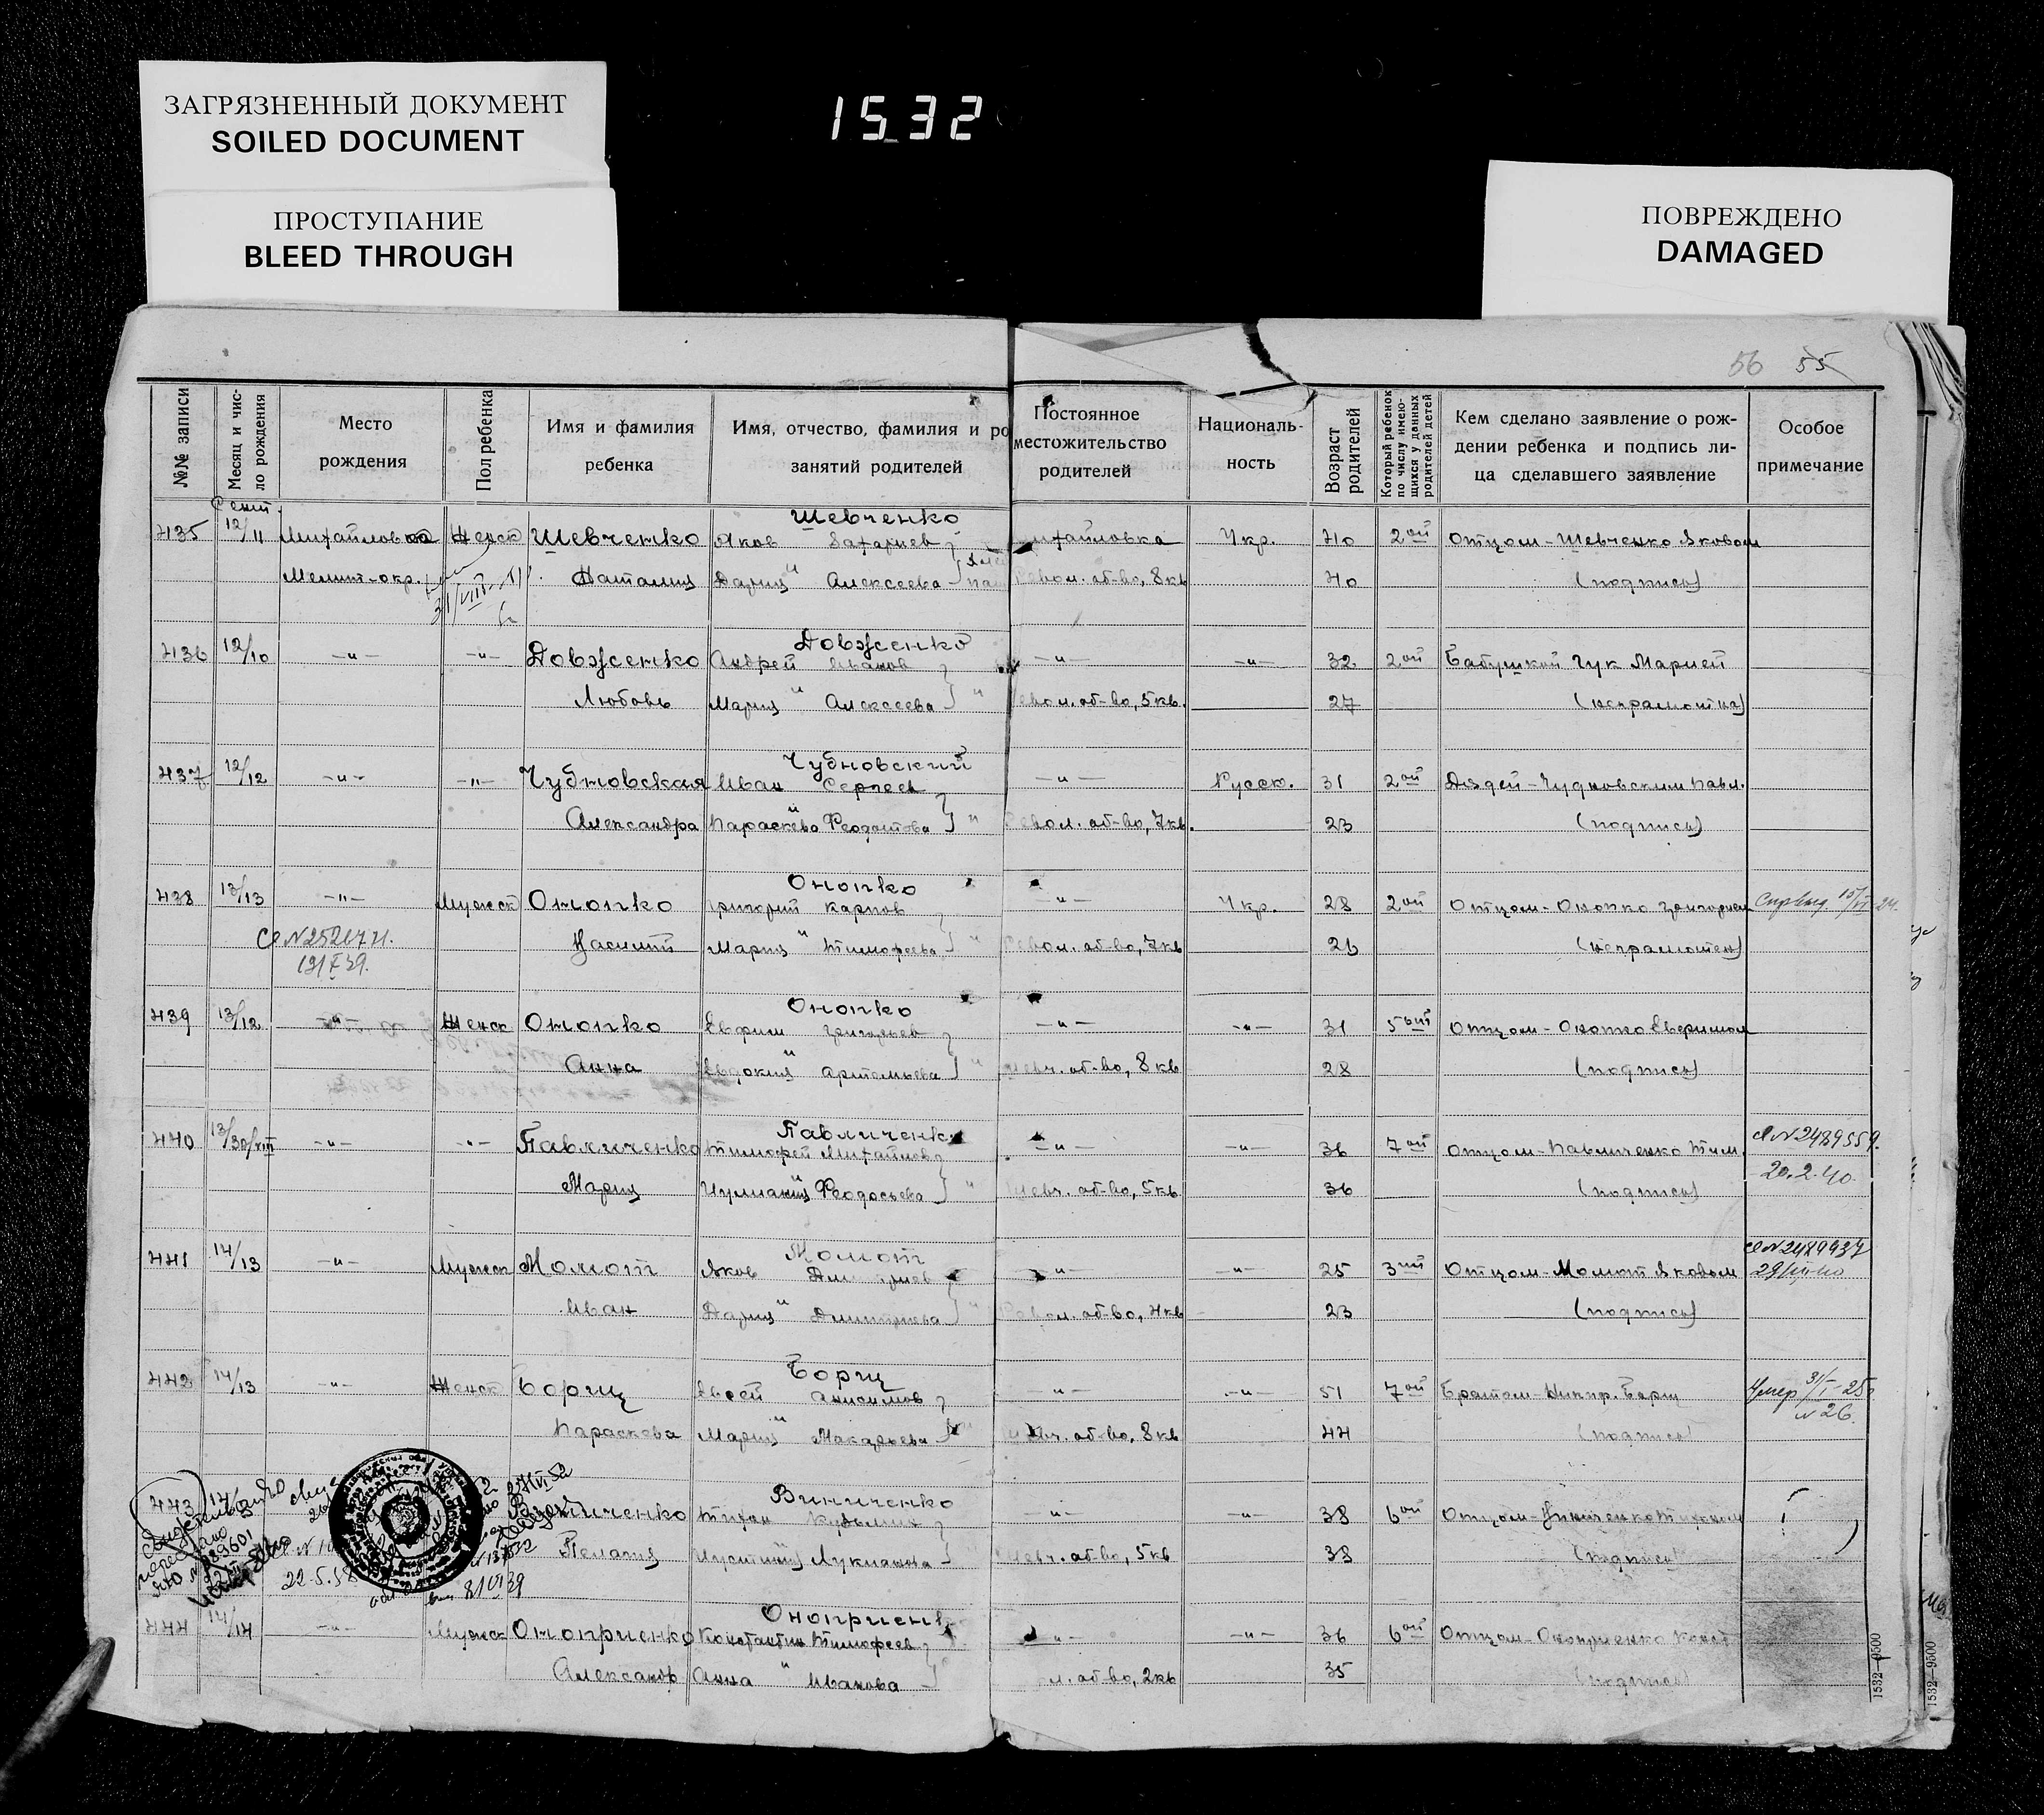 ЗАГРЯЗНЕННЫЙ ДОКУМЕНТ
SOILED DOCUMENT
ПРОСТУПАНИЕ
BLEED THROUGH
1532
ПОВРЕЖДЕНО
DAMAGED
56 55
№№ записи
Месяц и чис-
ло рождения
Место
рождения
Пол ребенка
Имя и фамилия
ребенка
Имя, отчество, фамилия и ро
занятий родителей
Постоянное
местожительство
родителей
Националь-
ность
Возраст
родителей
Который ребенок
по числу имею-
щихся у данных
родителей детей
Кем сделано заявление о рож-
дении ребенка и подпись ли-
ца сделавшего заявление
Особое
примечание
Сент.
Шевченко
435 12/11 Михайловка Женск Шевченко Яков Захариев Михайловка Укр. 40 2ой Отцом - Шевченко Яковом
Мелит-окр. Наталия Дария " Алексеева Револ. об-во, 8 кв 40 (подпись)
Довженко
436 12/10 -"- -"- Довженко Андрей Иванов -"- -"- 32 2ой Бабушкой Гук Марией
Любовь Мария " Алексеева " Револ. об-во, 5 кв. 27 (неграмотна)
Чудновский
437 12/12 -"- -"- Чудновская Иван Сергеев -"- Русск. 31 2ой Дядей - Чудновским Павл.
Александра Параскева Феодотова " Револ. об-во, 7 кв. 23 (подпись)
Онопко
438 13/13 -"- Мужск Онопко Григорий Карпов -"- Укр. 28 2ой Отцом - Онопко Григорием
Василий Мария " Тимофеева " Револ. об-во, 7 кв 26 (неграмотен)
Онопко
439 13/12 -"- Женск Онопко Евфим Григорьев -"- -"- 31 5ый Отцом - Онопко Евфимом
Анна Евдокия " Артемьева " Шевч. об-во, 8 кв 28 (подпись)
Павличенко
440 13/30/VIII -"- -"- Павличенко Тимофей Михайлов -"- -"- 36 7ой Отцом - Павличенко Тим. № 2489559.
Мария Иулиания Феодосьева " Шевч. об-во, 5 кв 36 (подпись) 20.2.40.
Момот
441 14/13 -"- Мужск Момот Яков Дмитриев -"- -"- 25 3ий Отцом - Момот Яковом № 2489937
Иван Дария " Дмитриева " Револ. об-во, 4 кв 23 (подпись)
Борщ
442 14/13 -"- Женск Борщ Евсей Анисимов -"- -"- 51 7ой Братом - Никиф. Борщ Умер 31/I-25
Параскева Мария " Макарьева Шевч. об-во, 8 кв 44 (подпись) № 26.
Виниченко
443 14/13 Виниченко Тихон Кузьмин -"- -"- 38 6ой Отцом - Виниченко Тихоном
Пелагия Иустиния Лукианова Шевч. об-во, 5 кв 38 (подпись)
22.5.38
Оноприенко
444 14/14 -"- Мужск Оноприенко Константин Тимофеев -"- -"- 36 6ой Отцом - Оноприенко Конст
Александр Анна " Иванова об-во, 2 кв 35 (подпись)
1532—9500
1532—9500